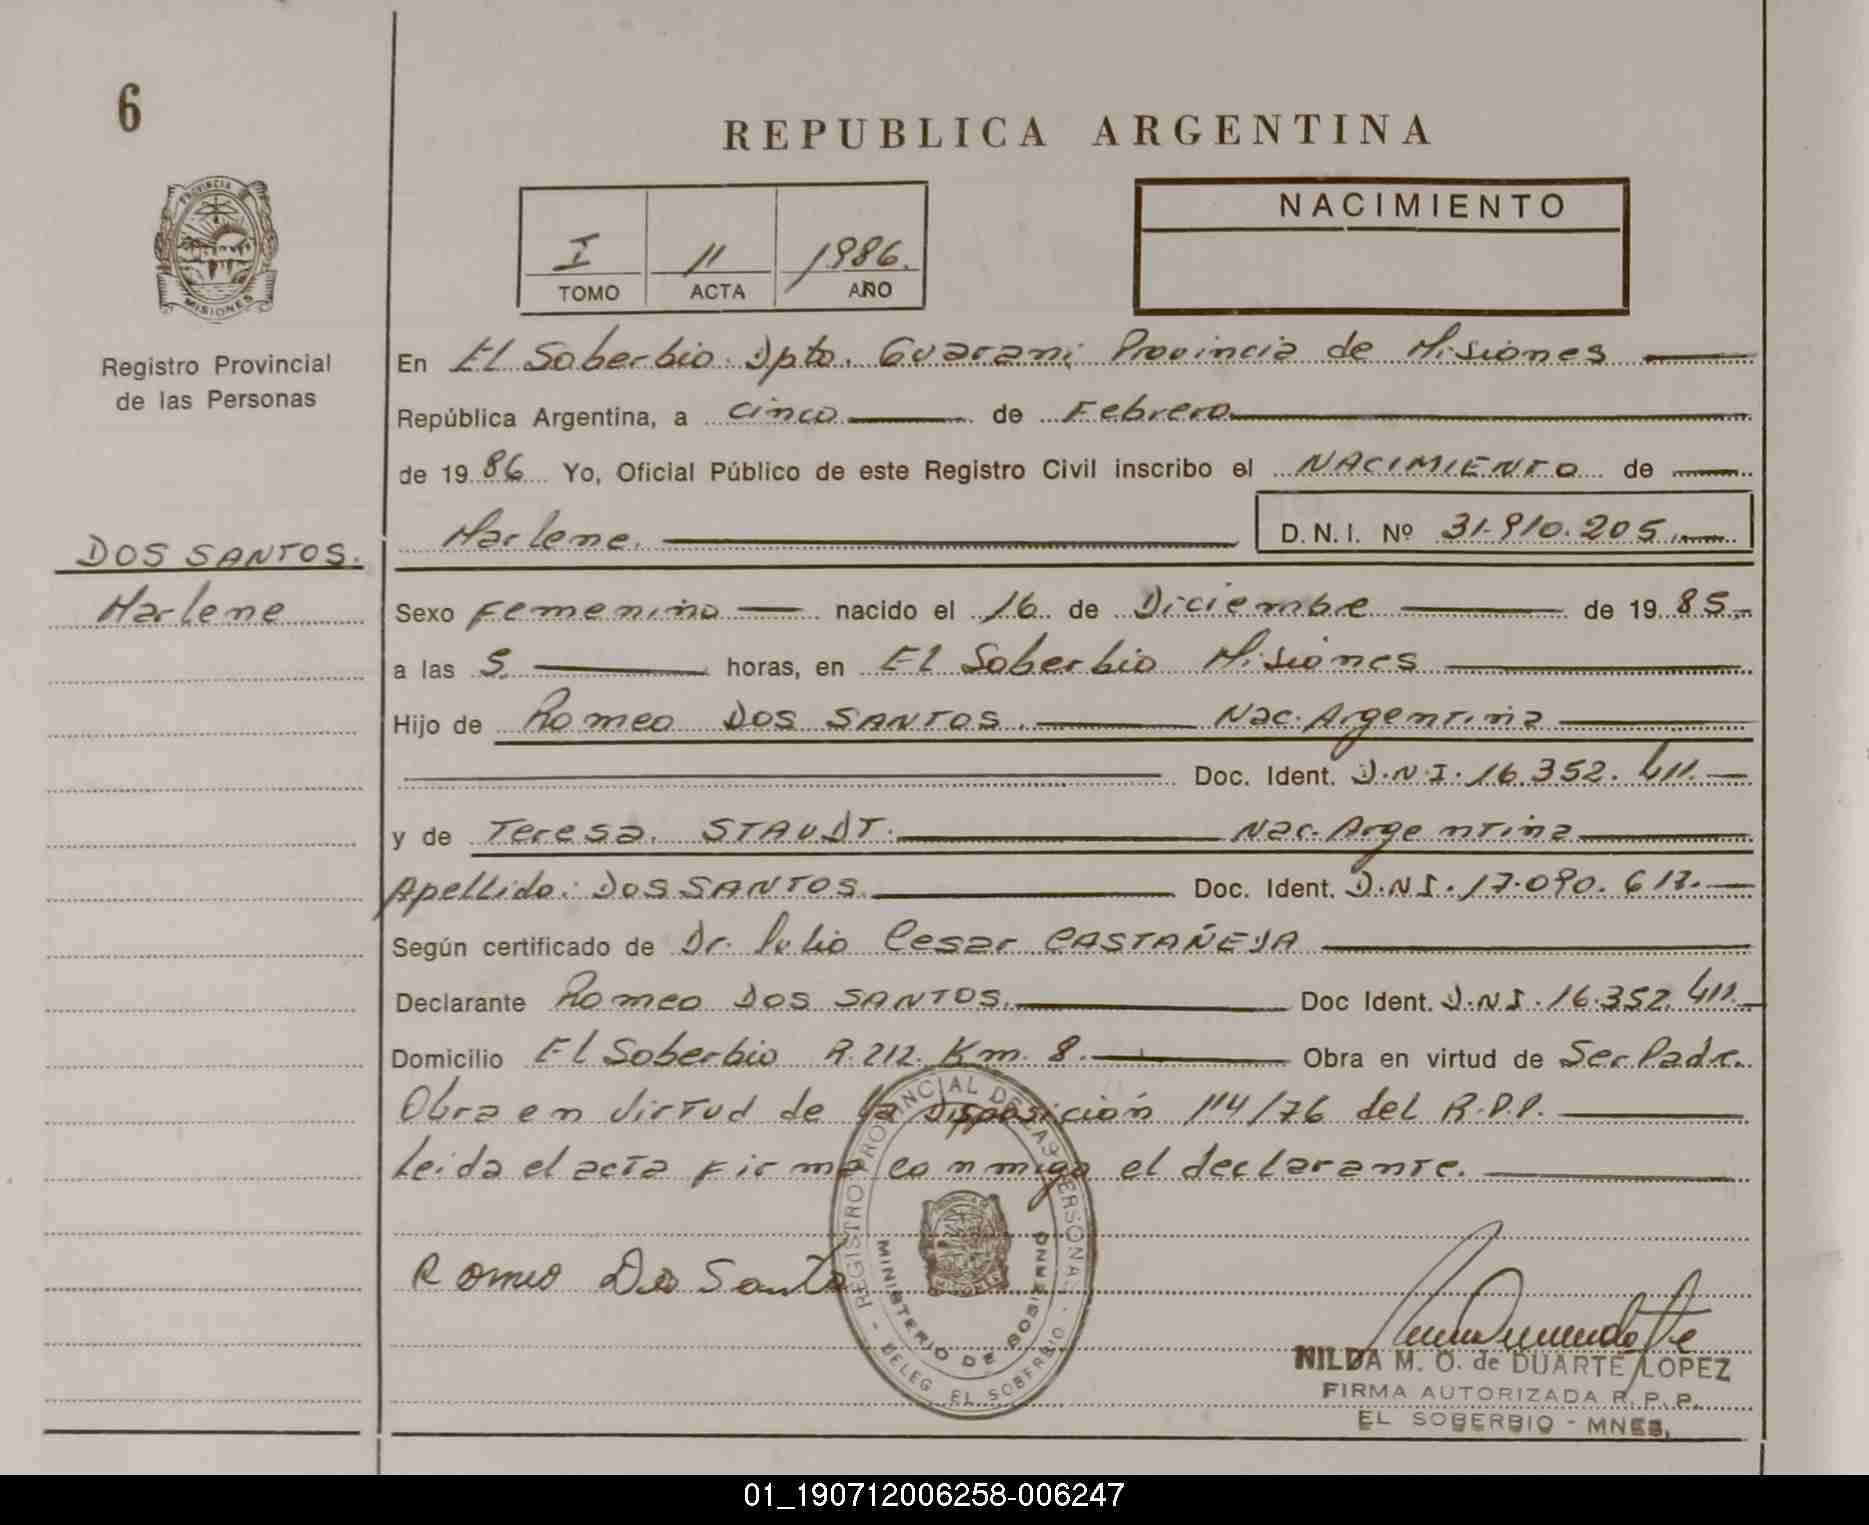 6
REPUBLICA ARGENTINA
PROVINCIA
MISIONES
I 11 1986.
TOMO ACTA AÑO
NACIMIENTO
Registro Provincial
de las Personas
En El Soberbio. Dpto. Guarani Provincia de Misiones
República Argentina, a cinco de Febrero
de 1986 Yo, Oficial Público de este Registro Civil inscribo el NACIMIENTO de
Marlene. D. N. I. Nº 31.910.205
DOS SANTOS.
Marlene
Sexo Femenino nacido el 16 de Diciembre de 1985
a las 5. horas, en El Soberbio Misiones
Hijo de Romeo DOS SANTOS. Nac. Argentina
Doc. Ident. D.N.I. 16.352.411.
y de Teresa. STAUDT. Nac. Argentina
Apellido: DOS SANTOS. Doc. Ident. D.N.I. 17.090.617.
Según certificado de Dr. Julio Cesar CASTAÑEDA
Declarante Romeo DOS SANTOS. Doc Ident. D.N.I. 16.352.411.
Domicilio El Soberbio R.212. Km. 8. Obra en virtud de Ser Padre.
Obra en virtud de la disposición 114/76 del R.P.P.
Leida el acta firma conmigo el declarante.
REGISTRO PROVINCIAL DE LAS PERSONAS
MINISTERIO DE GOBIERNO
- DELEG. EL SOBERBIO -
Romeo Dos Santos
NILDA M. O. de DUARTE LOPEZ
FIRMA AUTORIZADA R. P. P.
EL SOBERBIO - MNES.
01_190712006258-006247